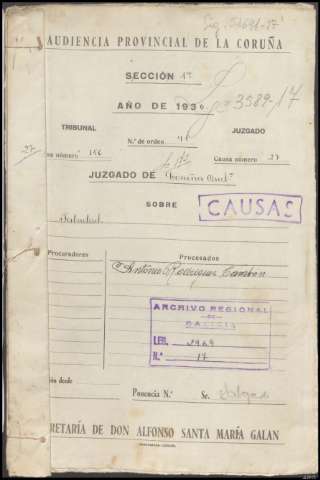 Sig.
AUDIENCIA PROVINCIAL DE LA CORUÑA
SECCIÓN 1ª
AÑO DE 193
3589-17
TRIBUNAL
JUZGADO
N.º de orden
27
sa número 186
Causa número 27
JUZGADO DE
SOBRE
CAUSAS
Procuradores
Procesados
Antonio Rodriguez
ARCHIVO REGIONAL
DE
GALICIA
LEG.
N.º 17
ión desde
Ponencia N.º
Sr. Salgado
RETARÍA DE DON ALFONSO SANTA MARÍA GALAN